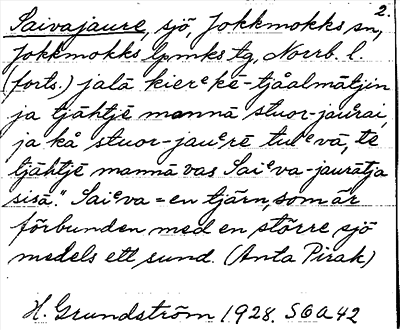 2.
Saivajaure, sjö, Jokkmokks sn,
Jokkmokks lpmks tg, Norrb. l.
(forts.) jalā kierᵉkē-tjåalmātjin
ja tjāhtjē mannā stuor-jaurai,
ja kå stuor-jauᵉrē tulᵉvā, te
tjāhtjē mannā vas Saiᵉva-jaurātja
sisā." Saiᵉva = en tjärn, som är
förbunden med en större sjö
medels ett sund. (Anta Pirak)
H. Grundström 1928. S6a42